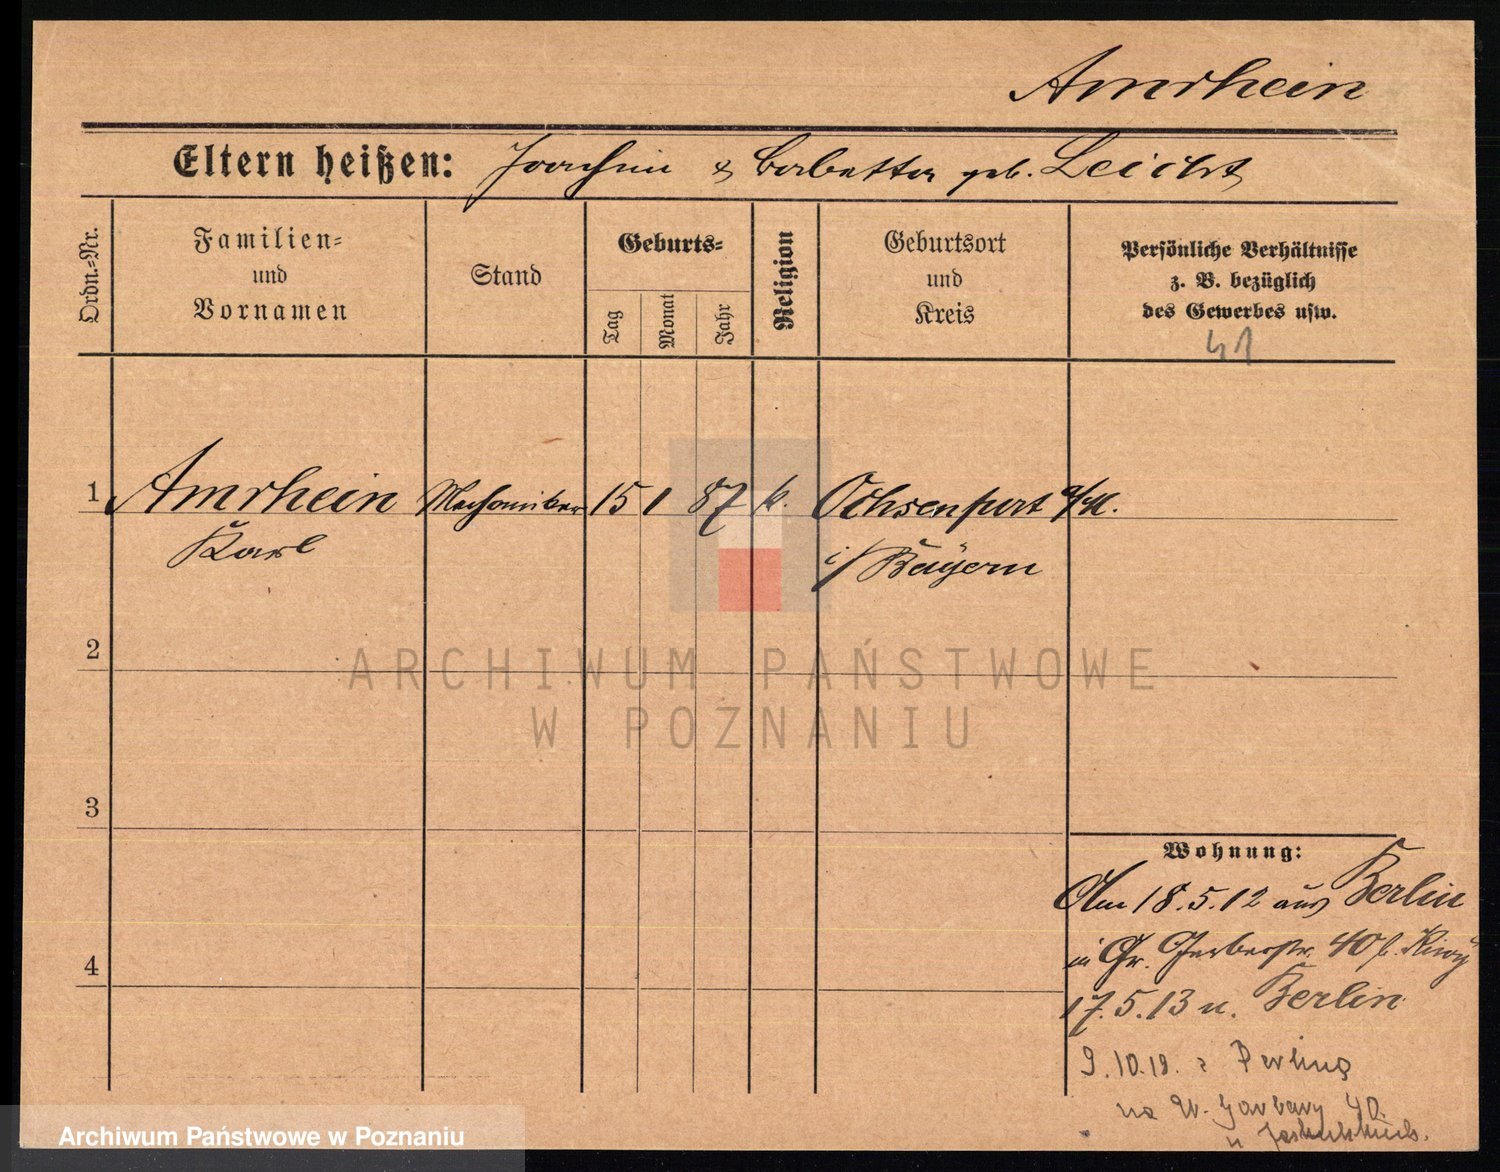 Amrhein
Eltern heißen: Joachim & Barbetta geb. Leicht
Ordn.-Nr.
Familien-
und
Vornamen
Stand
Geburts-
Tag
Monat
Jahr
Religion
Geburtsort
und
Kreis
Persönliche Verhältnisse
z. B. bezüglich
des Gewerbes usw.
41
1 Amrhein Mechaniker 15 1 87 k. Ochsenfurt a/M.
Karl i/Bayern
2
3
4
Wohnung:
Am 18.5.12 aus Berlin
in Gr. Gerberstr. 40 b.
17.5.13 n. Berlin
9.10.18. z Berlina
na W. Garbary 40.
u
ARCHIWUM PAŃSTWOWE
W POZNANIU
Archiwum Państwowe w Poznaniu